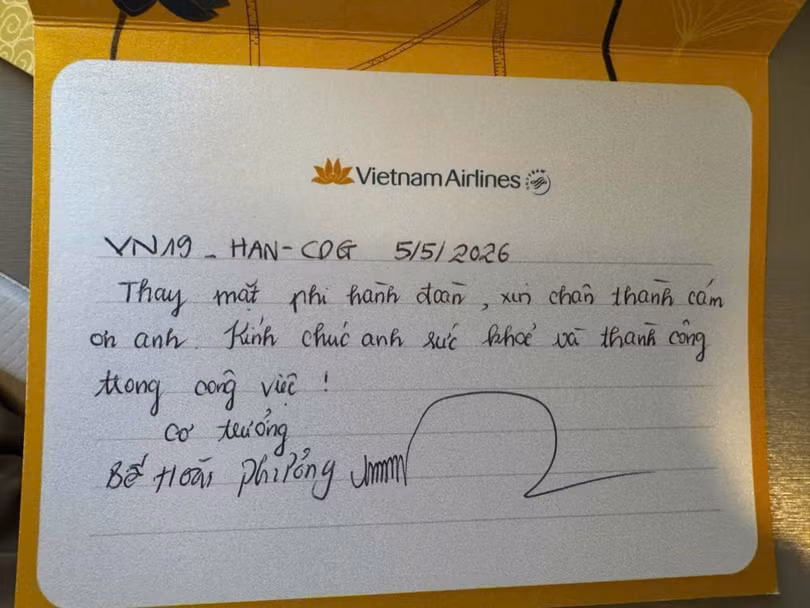 Vietnam Airlines
VN19 - HAN-CDG 5/5/2026
Thay mặt phi hành đoàn, xin chân thành cảm
ơn anh. Kính chúc anh sức khoẻ và thành công
trong công việc !
Cơ trưởng
Bế Hoài